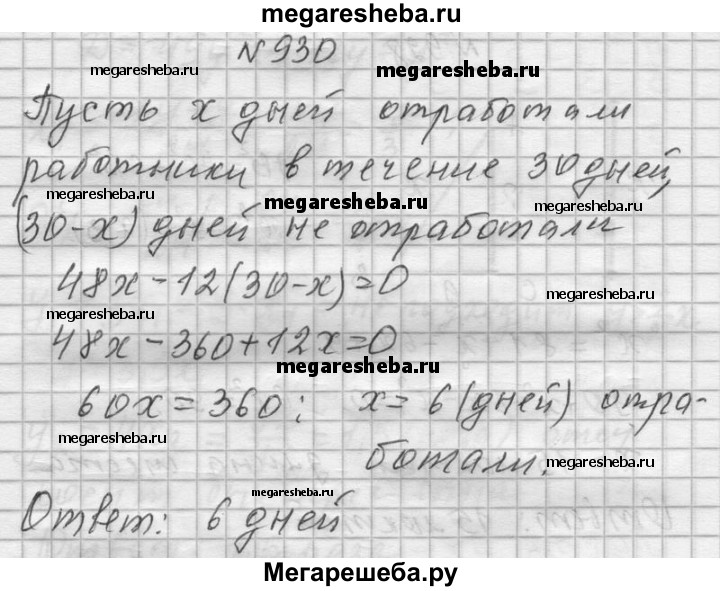 megaresheba.ru
№930
megaresheba.ru
megaresheba.ru
Пусть x дней отработали
работники в течение 30 дней,
megaresheba.ru
megaresheba.ru
megaresheba.ru
(30-x) дней не отработали
48x-12(30-x)=0
megaresheba.ru
megaresheba.ru
48x-360+12x=0
megaresheba.ru
60x=360; x=6(дней) отра-
megaresheba.ru
ботали.
megaresheba.ru
megaresheba.ru
Ответ: 6 дней
Мегарешеба.ру